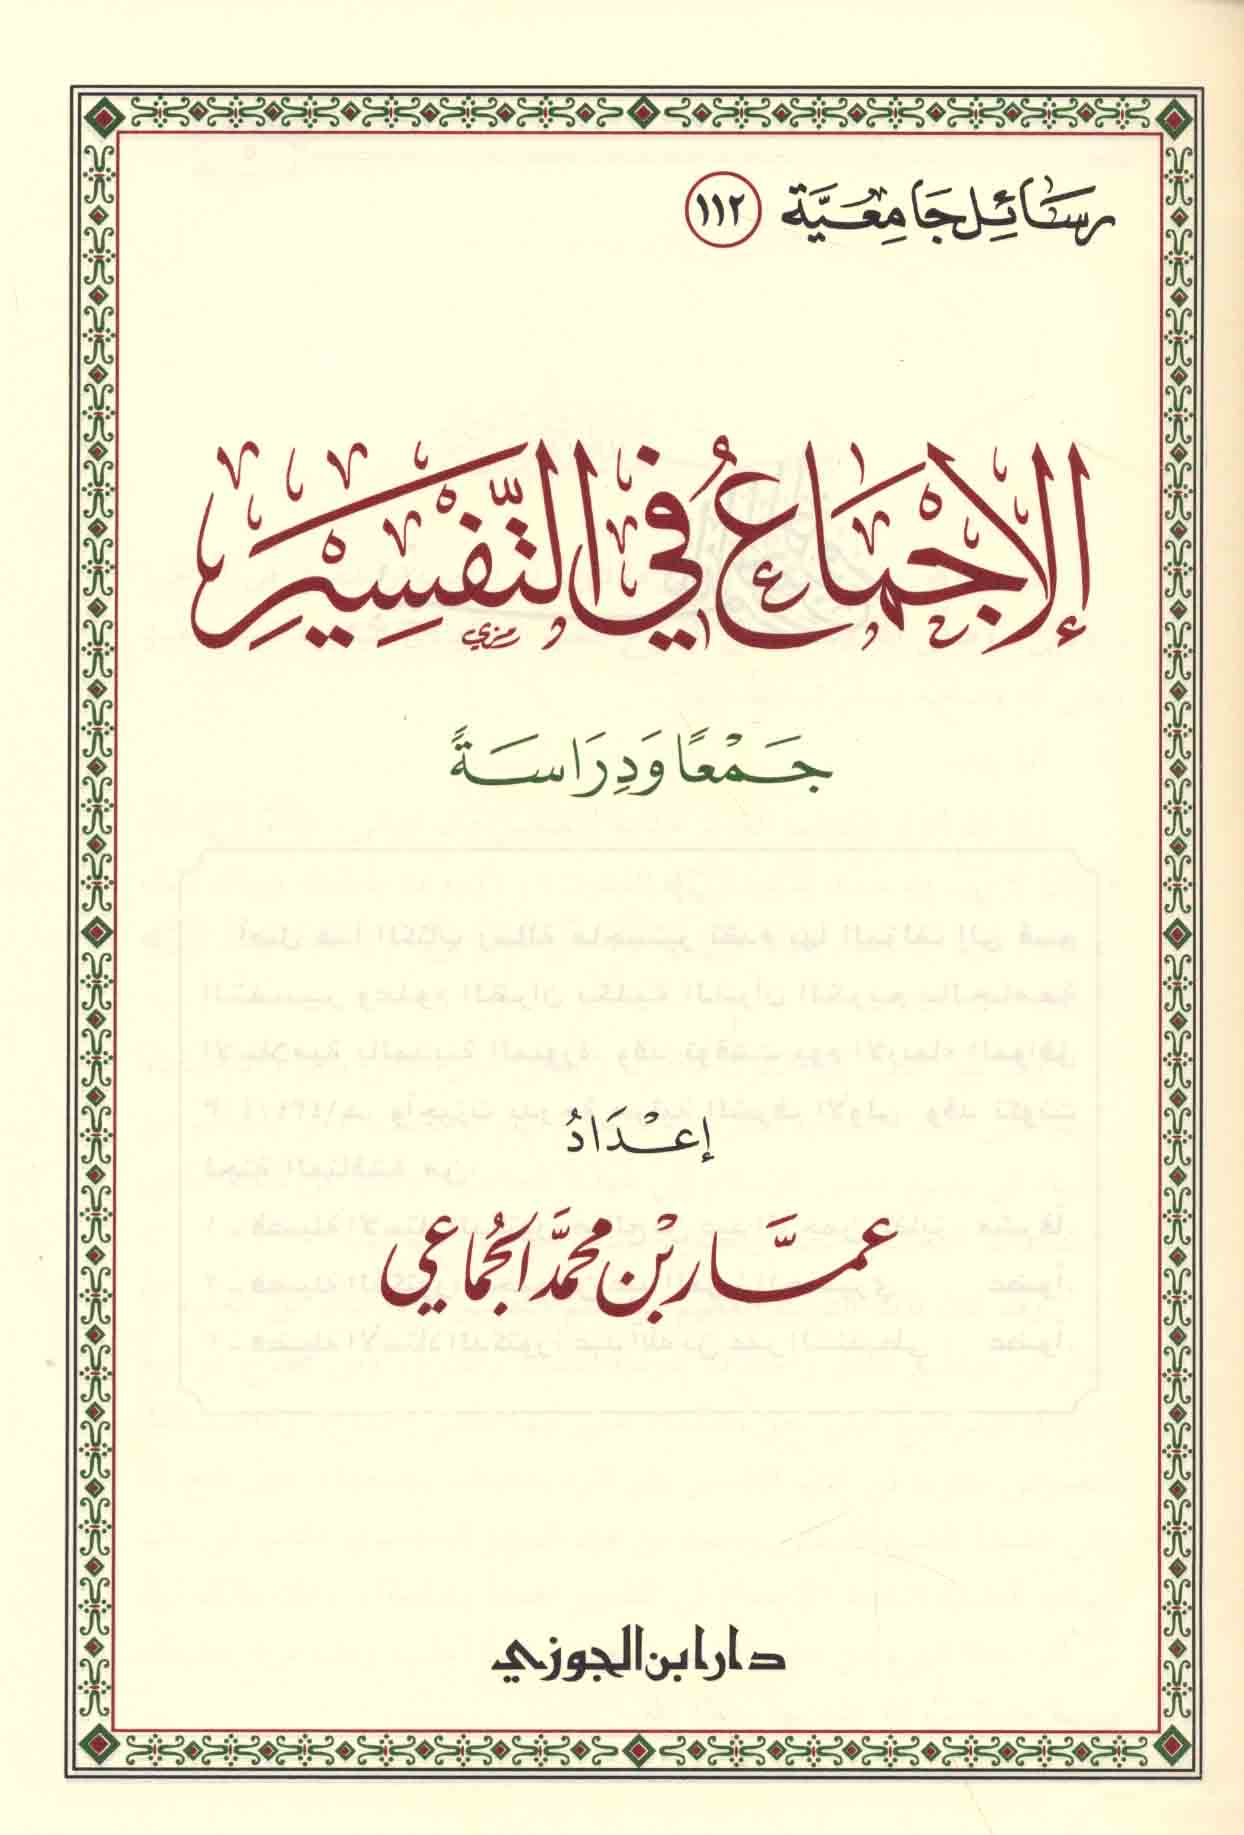 رسَائِل جَامِعِيَّة ١١٢
الإِجْمَاعُ فِي التَّفْسِيرِ
رمزي
جَمْعًا وَدِرَاسَةً
إعْدَادُ
عمَّار بْن محمَّد الجُماعي
دار ابن الجوزي